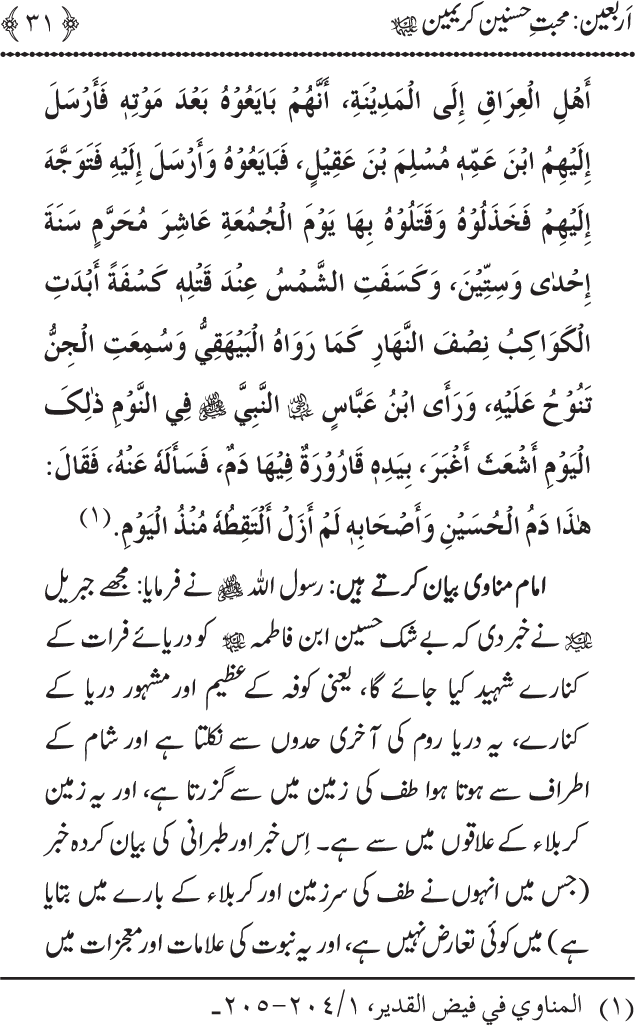 اَربعین: محبتِ حسنین کریمین علیہما السلام
﴿۳۱﴾
أَهْلِ الْعِرَاقِ إِلَى الْمَدِيْنَةِ، أَنَّهُمْ بَايَعُوْهُ بَعْدَ مَوْتِهٖ فَأَرْسَلَ
إِلَيْهِمُ ابْنَ عَمِّهٖ مُسْلِمَ بْنَ عَقِيْلٍ، فَبَايَعُوْهُ وَأَرْسَلَ إِلَيْهِ فَتَوَجَّهَ
إِلَيْهِمْ فَخَذَلُوْهُ وَقَتَلُوْهُ بِهَا يَوْمَ الْجُمُعَةِ عَاشِرَ مُحَرَّمٍ سَنَةَ
إِحْدٰى وَسِتِّيْنَ، وَكَسَفَتِ الشَّمْسُ عِنْدَ قَتْلِهٖ كَسْفَةً أَبْدَتِ
الْكَوَاكِبُ نِصْفَ النَّهَارِ كَمَا رَوَاهُ الْبَيْهَقِيُّ وَسُمِعَتِ الْجِنُّ
تَنُوْحُ عَلَيْهِ، وَرَأَى ابْنُ عَبَّاسٍ ؓ النَّبِيَّ ﷺ فِي النَّوْمِ ذٰلِكَ
الْيَوْمِ أَشْعَثَ أَغْبَرَ، بِيَدِهٖ قَارُوْرَةٌ فِيْهَا دَمٌ، فَسَأَلَهٗ عَنْهُ، فَقَالَ:
هٰذَا دَمُ الْحُسَيْنِ وَأَصْحَابِهٖ لَمْ أَزَلْ أَلْتَقِطُهٗ مُنْذُ الْيَوْمِ.(۱)
امام مناوی بیان کرتے ہیں: رسول اللہ ﷺ نے فرمایا: مجھے جبریل
علیہ السلام نے خبر دی کہ بے شک حسین ابن فاطمہ علیہما السلام کو دریائے فرات کے
کنارے شہید کیا جائے گا، یعنی کوفہ کے عظیم اور مشہور دریا کے
کنارے، یہ دریا روم کی آخری حدوں سے نکلتا ہے اور شام کے
اطراف سے ہوتا ہوا طف کی زمین میں سے گزرتا ہے، اور یہ زمین
کربلاء کے علاقوں میں سے ہے۔ اِس خبر اور طبرانی کی بیان کردہ خبر
(جس میں انہوں نے طف کی سرزمین اور کربلاء کے بارے میں بتایا
ہے) میں کوئی تعارض نہیں ہے، اور یہ نبوت کی علامات اور معجزات میں
(۱) المناوي في فيض القدير، ۱/۲۰۴-۲۰۵۔